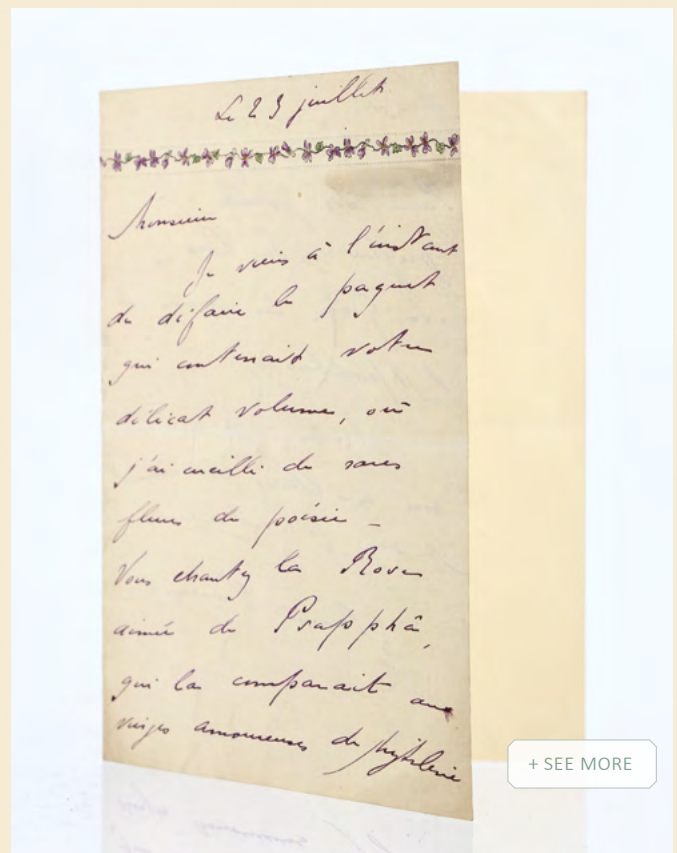 Le 23 juillet
Monsieur
Je viens à l'instant
de défaire le paquet
qui contenait votre
délicat volume, où
j'ai cueilli de rares
fleurs de poésie –
Vous chantez la Rose
aimée de Psapphâ,
qui la comparait aux
vierges amoureuses de
+ SEE MORE